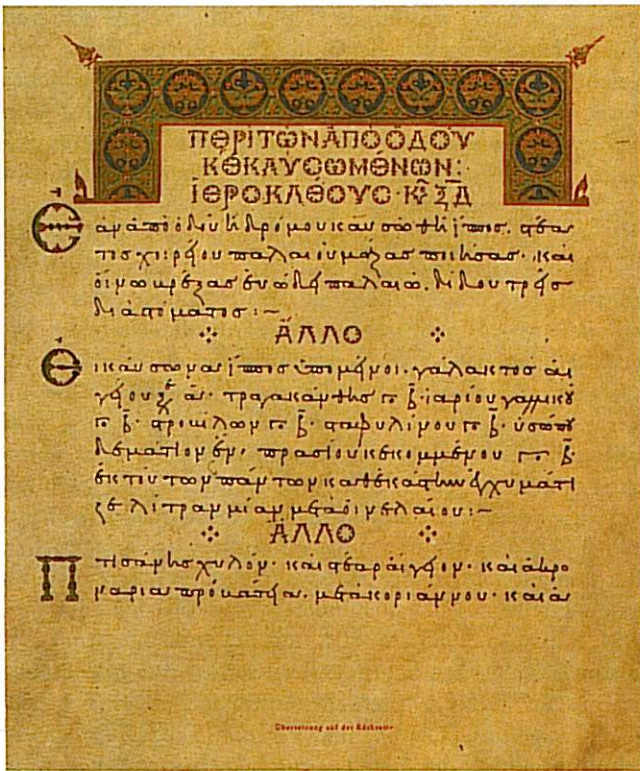 ΠΕΡΙ ΤῶΝ ἈΠΟ ὉΔΟΥ
ΚΕΚΑΥϹΩΜΕΝΩΝ:
ἹΕΡΟΚΛΕΟΥϹ· ΚΕ ΞΔ
Ἐὰν ἀπὸ ὁδοῦ ἢ δρόμου καυσωθῇ ἵππος, στέα
τος χοιρείου παλαιοῦ μάζας ποιήσας· καὶ
οἴνω εὐώδει παλαιῶ, δίδου τρεῖς
διὰ στόματος:~
ἌΛΛΟ
Εἰ καύσωνα ἵππος ὑπομένοι, γάλακτος αἰ
γείου ξε α· τραγακάνθης Γο β· ἰαρίου γαλλικοῦ
Γο β· στροβίλων Γο β· σταφυλίνου Γο β· ὑσώπου
δεμάτιον ἕν· πρασίου κεκομμένου Γο β
ἐκ τούτων πάντων καθεκάστην ἐγχυμάτι
ζε λίτραν μίαν μετὰ οἰνελαίου:~
ἌΛΛΟ
Πτισάνης χυλὸν· καὶ στέαρ αἴγειον· καὶ
μετὰ κοριάννου· καὶ α
Übersetzung auf der Rückseite